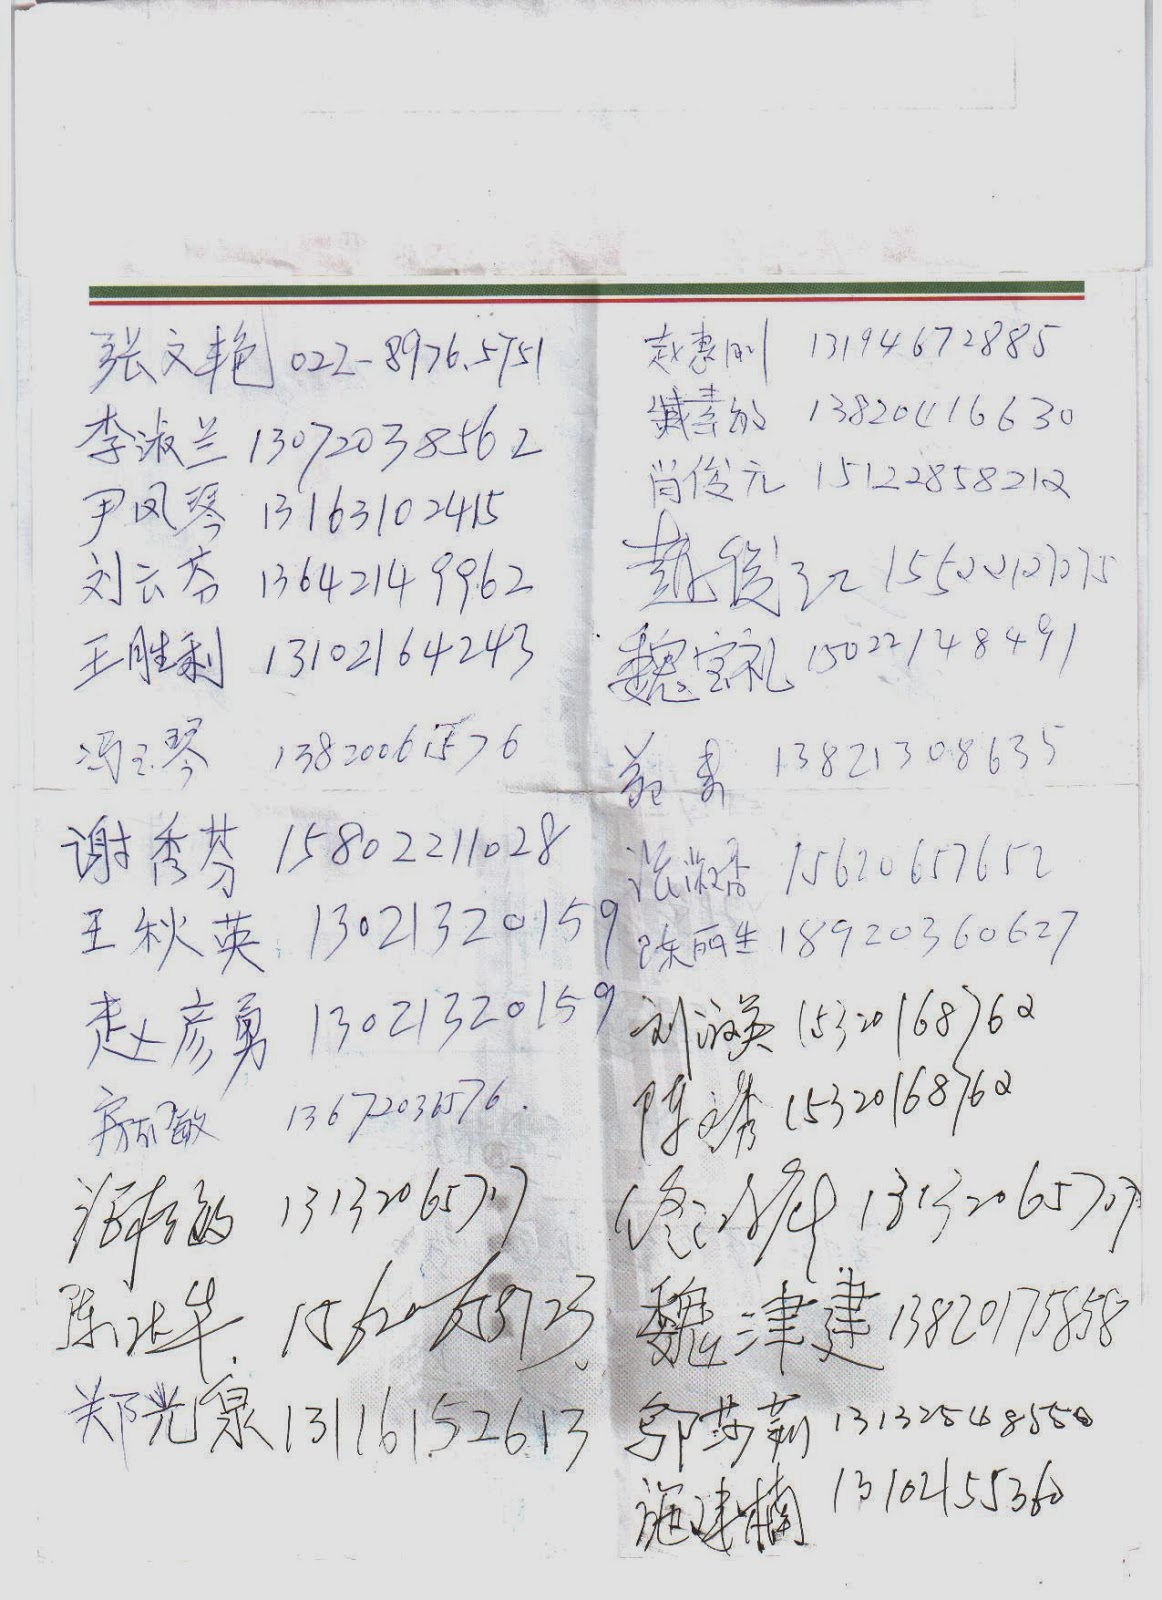 张文艳 022-8976.5751
李淑兰 13072038562
尹凤琴 13163102415
刘云芬 13642149962
王胜利 13102164243
冯玉琴 13820061576
谢秀芬 15802211028
王秋英 13021320159
赵彦勇 13021320159
房丽敏 13672036576.
13132065717
陈 华. 15620658723.
郑光泉 13116152613
赵惠刚 13194672885
臧素敏 13820416630
肖俊元 15122858212
赵俊江 15522127275
魏宝礼 15022148491
范勇 13821308635
张淑香 15620657652
陈丽生 18920360627
刘淑英 15320168762
陈文秀 15320168762
13132065717
魏津建 13820175858
邬莎莉 13132548550
施建楠 13102155360